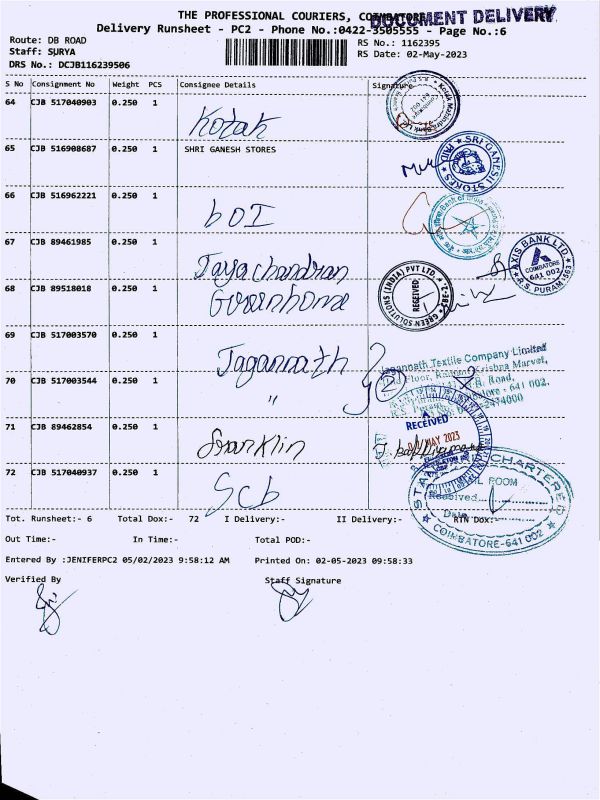 THE PROFESSIONAL COURIERS, COIMBATORE
DOCUMENT DELIVERY
Delivery Runsheet - PC2 - Phone No.:0422-3505555 - Page No.:6
Route: DB ROAD
RS No.: 1162395
Staff: SURYA
RS Date: 02-May-2023
DRS No.: DCJB116239506
S No Consignment No Weight PCS Consignee Details Signature
64 CJB 517040903 0.250 1 Kotak
65 CJB 516908687 0.250 1 SHRI GANESH STORES
SRI GANESH STORES
66 CJB 516962221 0.250 1 bOI
Bank of India
67 CJB 89461985 0.250 1 Jayachandran
AXIS BANK LTD.
COIMBATORE
641 002
R.S. PURAM
68 CJB 89518018 0.250 1 Greenhome
GREEN SOLUTIONS (INDIA) PVT LTD.
RECEIVED
69 CJB 517003570 0.250 1 Jagannath
2
Jagannath Textile Company Limited
Krishna Marvel,
Road,
641 002.
2474000
70 CJB 517003544 0.250 1 "
71 CJB 89462854 0.250 1 Franklin
RECEIVED
MAY 2023
72 CJB 517040937 0.250 1 Scb
STANDARD CHARTERED
Received
Date
COIMBATORE-641 002
Tot. Runsheet:- 6 Total Dox:- 72 I Delivery:- II Delivery:- RTN Dox:-
Out Time:- In Time:- Total POD:-
Entered By :JENIFERPC2 05/02/2023 9:58:12 AM Printed On: 02-05-2023 09:58:33
Verified By Staff Signature